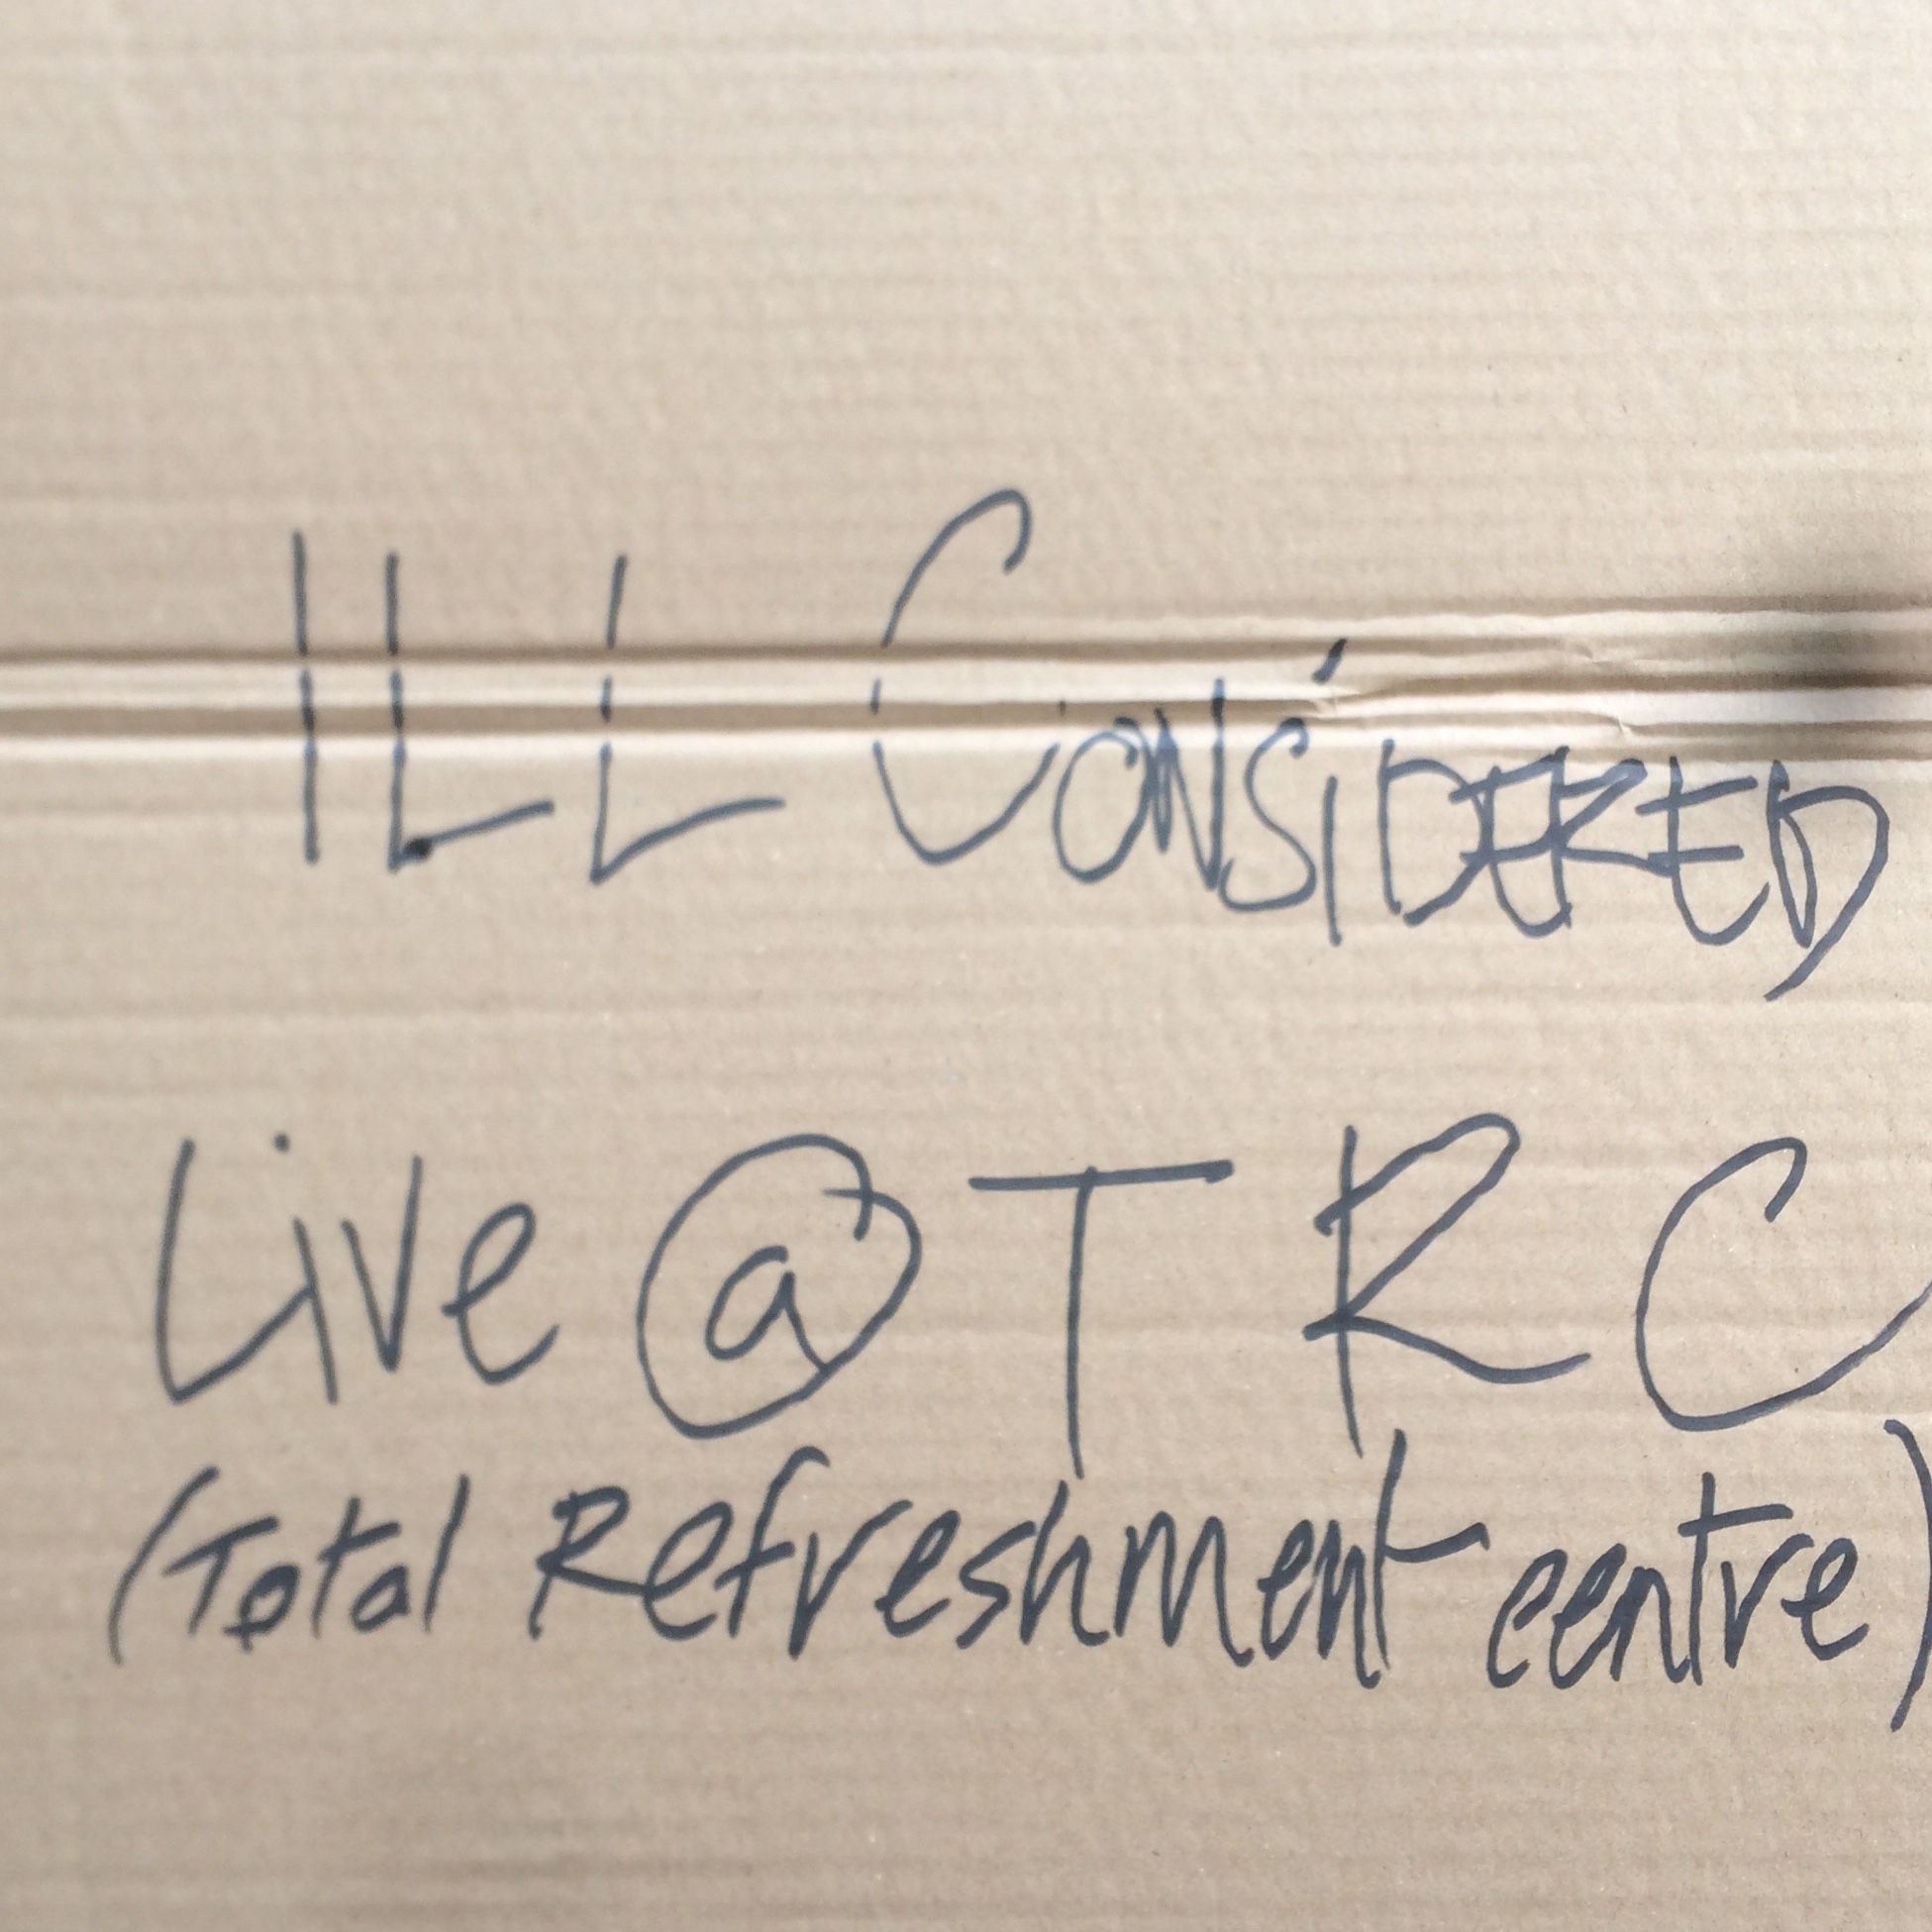 ILL CONSiDERED
Live @ T R C
(Total Refreshment centre)